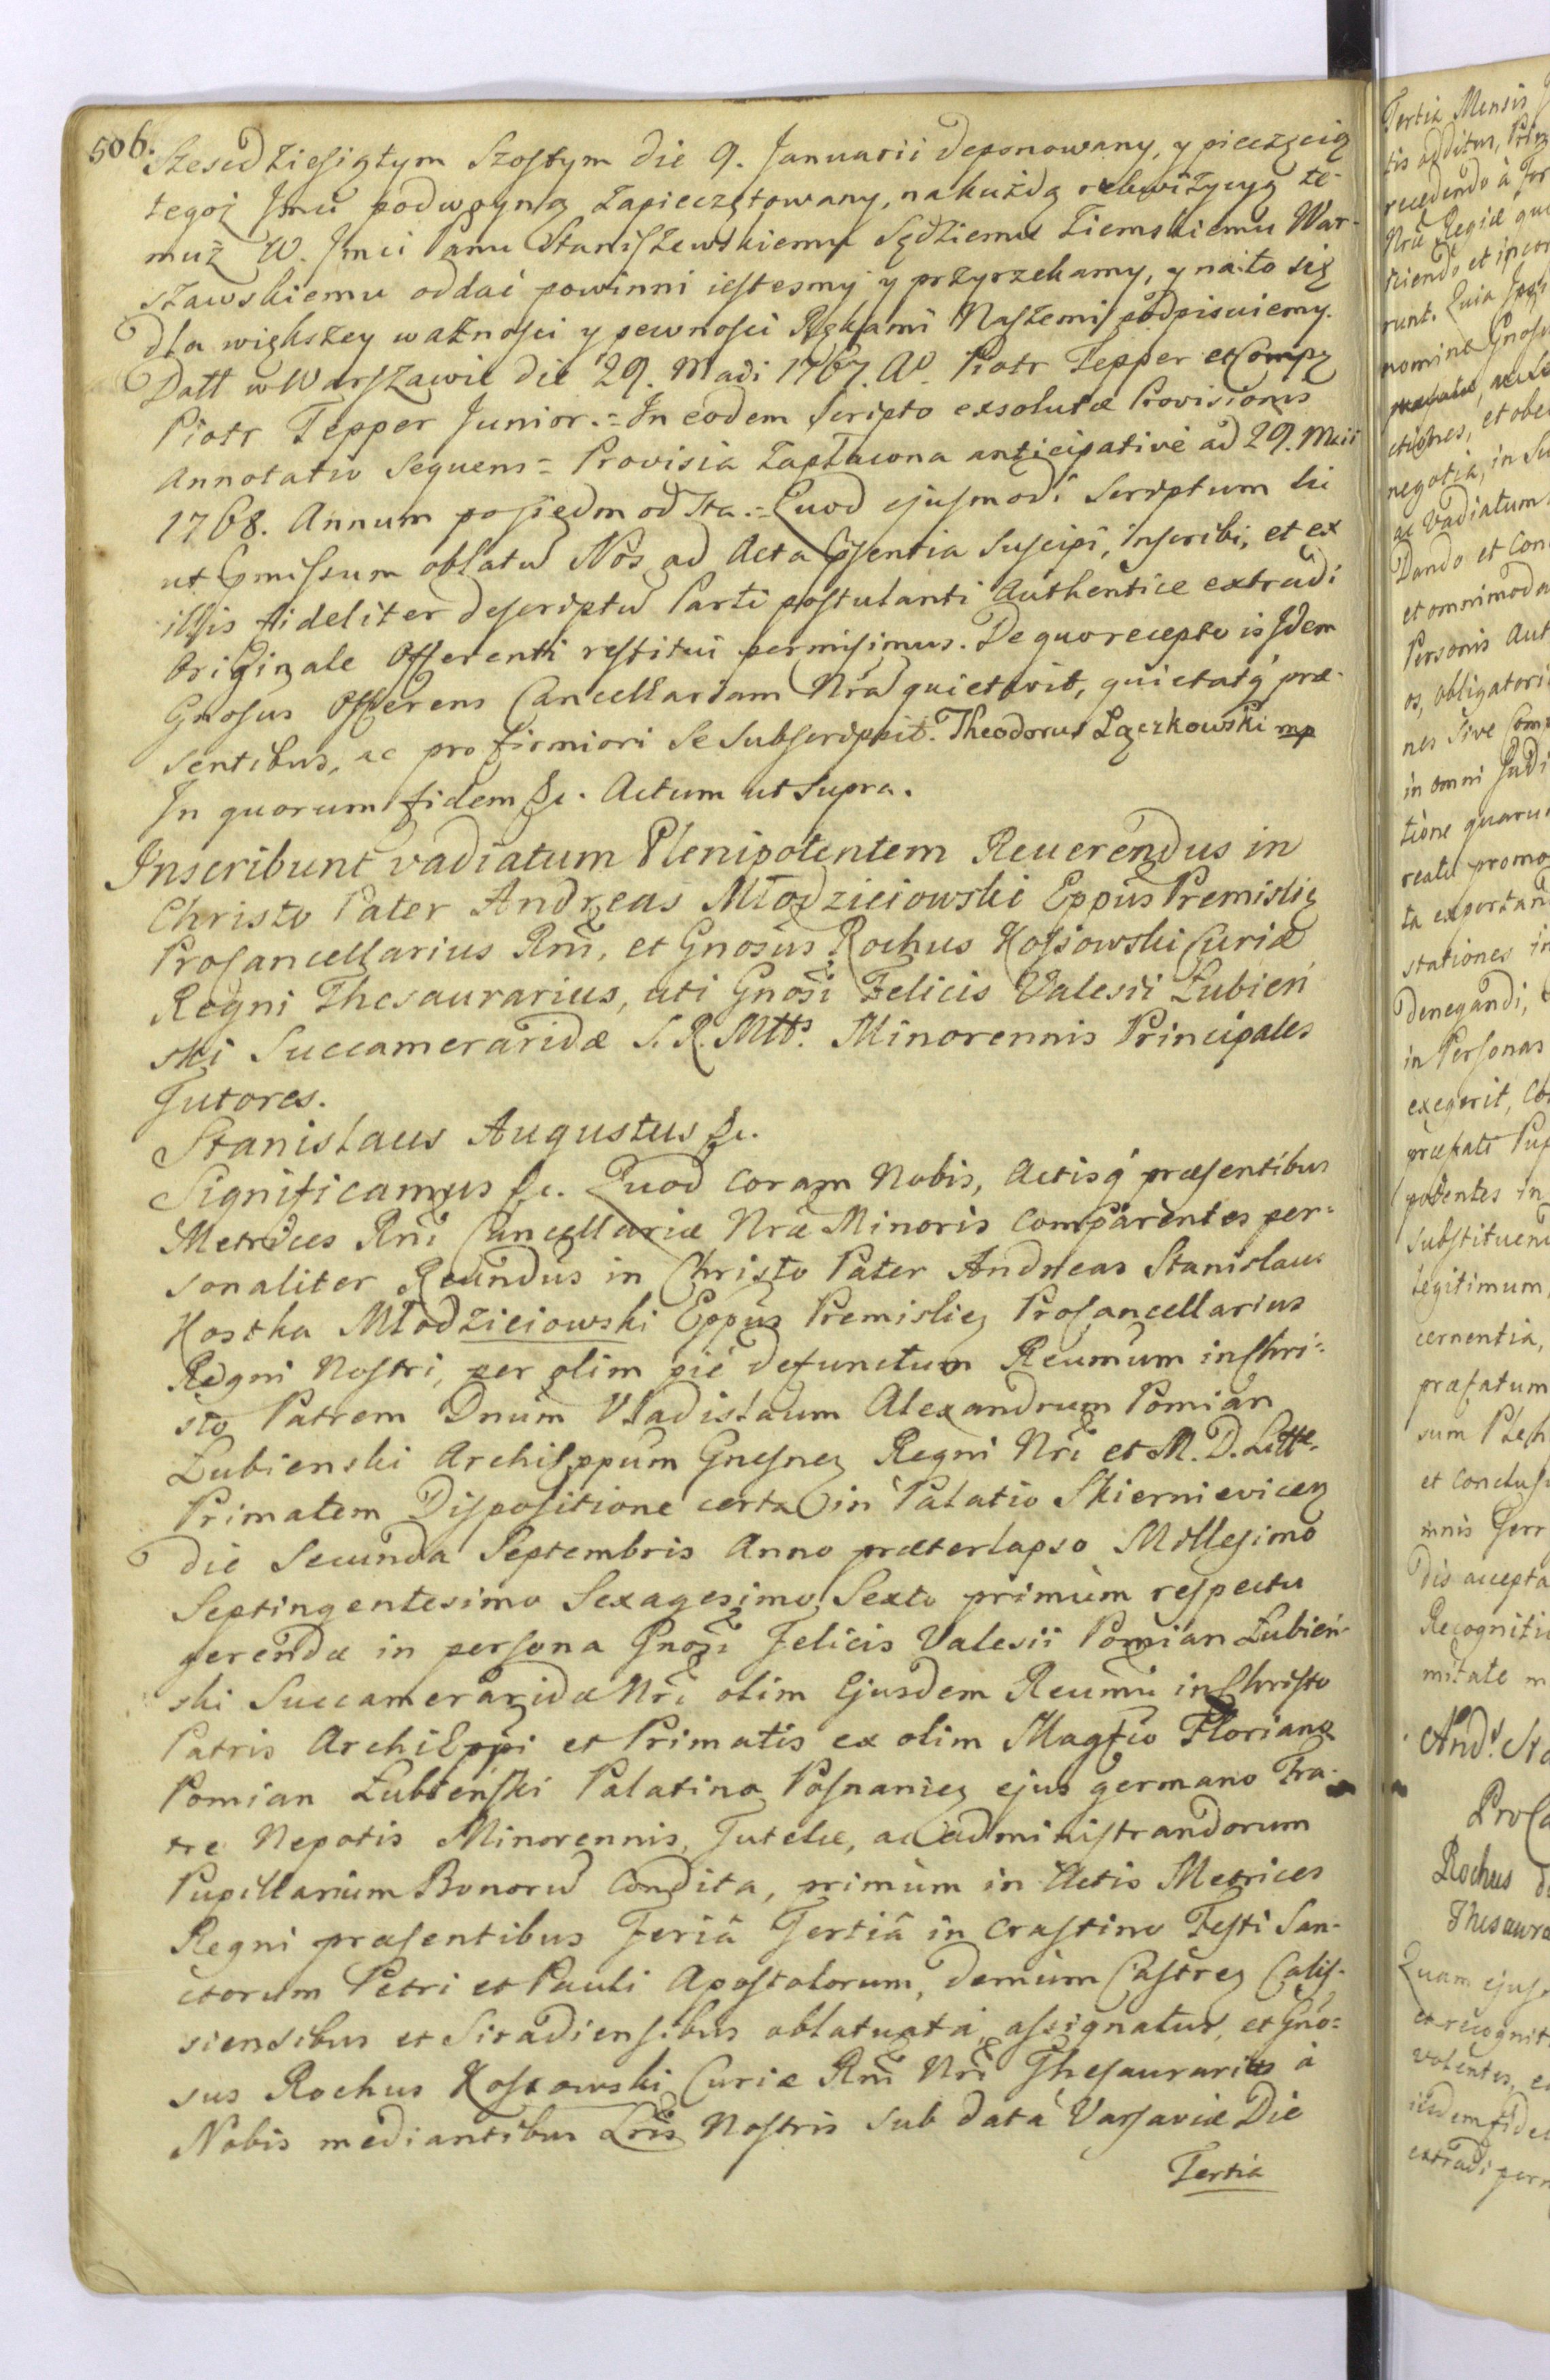 506.
Szescdziesiątym Szostym die 9. Januarii deponowany, y pieczęcią
tegoż Jmci podwoyną zapieczętowany, na każdą rekwizycyą te-
muż W. Jmci Panu Staniszewskiemu Sędziemu Ziemskiemu War-
szawskiemu oddać powinni iestesmy y przyrzekamy, y na to się
dla większey ważności y pewności Rękami Naszemi podpisuiemy.
Datt w Warszawie die 29. Madi 1767. Ao. Piotr Tepper et Comp
Piotr Tepper Junior.= In eodem Scripto exsolutæ Provisionis
Annotatio Sequens = Provisia zapłacona anticipativè ad 29. Maii
1768. Annum po siedm od Sta.= Quod ejusmodi Scriptum sic
ut pmissum oblatũ Nos ad Acta psentia Suscipi, inscribi, et ex
illis fideliter descriptũ Parti postulanti Authentice extradi
Originale Offerenti restitui permisimus. De quo recepto is Idem
Gnosus Offerens Cancellariam Nrã quietavit, quietatq præ-
sentibus, ac pro firmiori Se Subscripsit. Theodorus Łączkowski mp
In quorum fidem &c. Actum ut Supra.
Inscribunt vadiatum Plenipotentem Reuerendus in
Christo Pater Andreas Młodzieiowski Eppus Premislien
Procancellarius Rni, et Gnosus Rochus Kossowski Curiæ
Regni Thesaurarius, uti Gnosi Felicis Valesii Łubień
ski Succameraridæ S. R. Mtts. Minorennis Principales
Tutores.
Stanislaus Augustus &c.
Significamus &c. Quod coram Nobis, Actisq præsentibus
Metrices Rni Cancellariæ Nræ Minoris Comparentes per-
sonaliter Reundus in Christo Pater Andreas Stanislaus
Kostka Młodzieiowski Eppus Premislien Procancellarius
Regni Nostri, per olim piè defunctum Reumum in Chri-
sto Patrem Dnum Vladislaum Alexandrum Pomian
Łubienski Archieppum Gnesnen Regni Nri et M. D. Litt.
Primatem Dispositione certa in Palatio Skiernievicen
die Secunda Septembris Anno præterlapso Millesimo
Septingentesimo Sexagesimo Sexto primùm respectu
gerendæ in persona Gnosi Felicis Valesii Pomian Łubień-
ski Succameraridæ Nri olim Ejusdem Reumi in Christo
Patris ArchiEppi et Primatis ex olim Magfco Floriano
Pomian Łubieński Palatino Posnanien ejus germano Fra-
tre Nepotis Minorennis, Tutelæ, ac administrandorum
Pupillarium Bonorũ Condita, primùm in Actis Metrices
Regni præsentibus Feriâ Tertiâ in Crastino Festi San-
ctorum Petri et Pauli Apostolorum, demùm Castren Calis-
siensibus et Siradiensibus oblata, assignatur, et Gno-
sus Rochus Kossowski Curiæ Rni Nri Thesaurarius à
Nobis mediantibus Lris Nostris sub data Varsaviæ Die
Tertia
Tertia Mensis
nomine Gnosi
negotia, in
ac vadiatum
Dando et Con
et omnimoda
Personis Aut
os, obligatori
nes sive Comp
in omni Judi
tione quaru
ta exportan
stationes in
denegandi,
in Personas
exegerit, Co
præfati Pup
potentes in
substituen
legitimum,
cernentia,
præfatum
sum Plen
et conclus
dis accepta
Recogniti
mitate m
And. Sta
ProCa
Rochus
Thesaura
Quam ejus
et recognit
volentes, e
extradi per